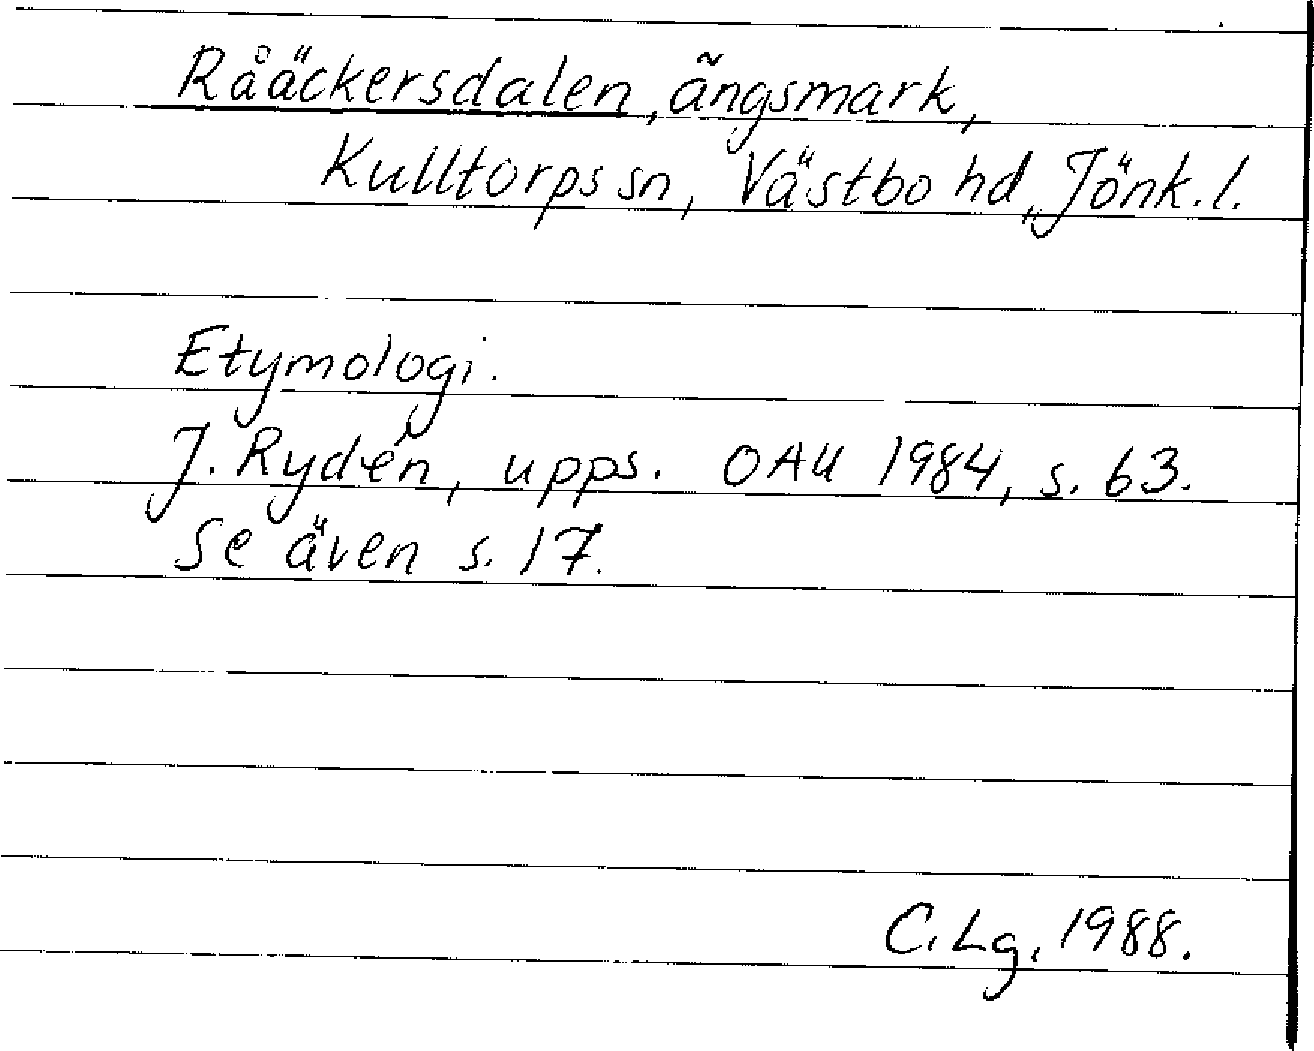 Rååckersdalen, ängsmark,
Kulltorps sn, Västbo hd, Jönk. l.
Etymologi.
J. Rydén, upps. OAU 1984, s. 63.
Se även s. 17.
C. Lg. 1988.